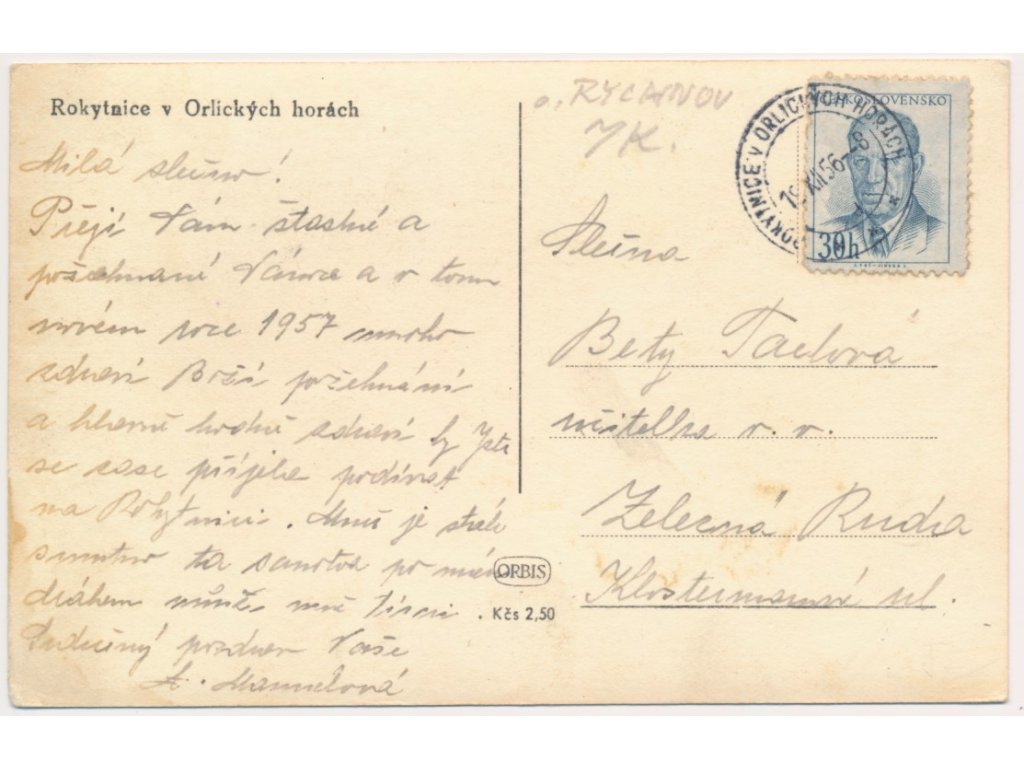 Rokytnice v Orlických horách
Milá slečno!
Přeji Vám šťastné a
požehnané Vánoce a v tom
novém roce 1957 mnoho
zdraví Boží požehnání
a hlavně hodně zdraví by
se zase přijela podívat
na Rokytnici. Mně je stále
smutno ta samota po mém
drahém muži mě tísní.
Srdečný pozdrav Vaše
A. Mannelová
ORBIS
Kčs 2,50
a. RYCHNOV
n/K.
ROKYTNICE V ORLICKÝCH HORÁCH
19.XII.56-8
ČESKOSLOVENSKO
30h
Slečna
Bety Taclová
učitelka v. v.
Železná Ruda
Klostermannova ul.